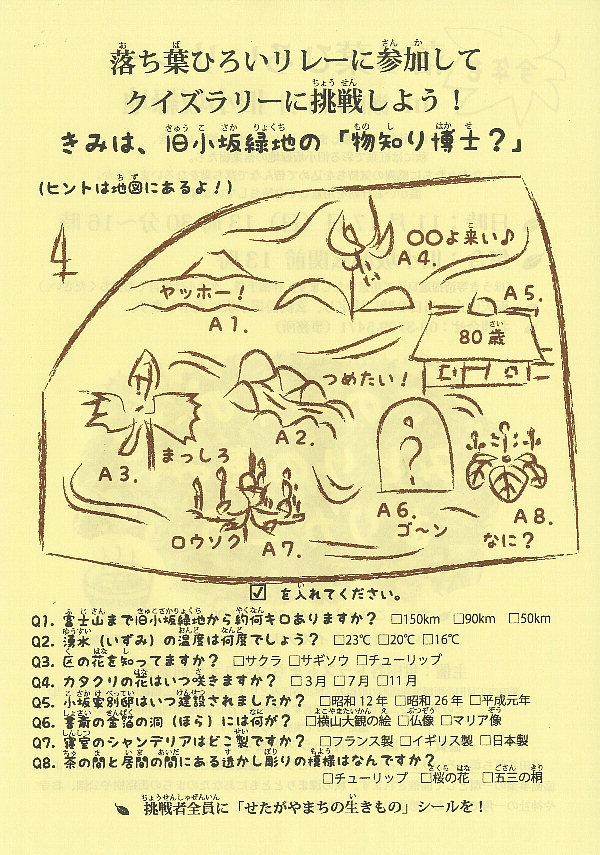 落ち葉ひろいリレーに参加して
クイズラリーに挑戦しよう！
きみは、旧小坂緑地の「物知り博士？」
(ヒントは地図にあるよ！)
〇〇よ来い♪
A4.
ヤッホー！
A1.
A5.
80歳
つめたい！
A2.
A3.
まっしろ
A6.
ゴ〜ン
A8.
なに？
ロウソク A7.
☑ を入れてください。
Q1. 富士山まで旧小坂緑地から約何キロありますか？ □150km □90km □50km
Q2. 湧水（いずみ）の温度は何度でしょう？ □23℃ □20℃ □16℃
Q3. 区の花を知ってますか？ □サクラ □サギソウ □チューリップ
Q4. カタクリの花はいつ咲きますか？ □3月 □7月 □11月
Q5. 小坂家別邸はいつ建設されましたか？ □昭和12年 □昭和26年 □平成元年
Q6. 書斎の金箔の洞（ほら）には何が？ □横山大観の絵 □仏像 □マリア像
Q7. 寝室のシャンデリアはどこ製ですか？ □フランス製 □イギリス製 □日本製
Q8. 茶の間と居間の間にある透かし彫りの模様はなんですか？
□チューリップ □桜の花 □五三の桐
挑戦者全員に「せたがやまちの生きもの」シールを！